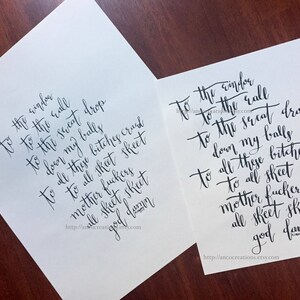 to the window
to the wall
to the sweat drop
down my balls
to all these bitches crawl
to all skeet skeet
mother fuckers
all skeet skeet
god damn
http://amoscreations.etsy.com
to the window
to the wall
to the sweat drop
down my balls
to all these bitches
to all skeet
mother fuckers
all skeet
god
http://amoscreations.etsy.com